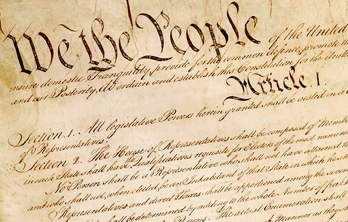 We the People of the United
insure domestic Tranquility, provide for the common defence, promote the
and our Posterity, do ordain and establish this Constitution for the United
Article I.
Section. 1. All legislative Powers herein granted shall be vested in a
of Representatives.
Section. 2. The House of Representatives shall be composed of Members
in each State shall have Qualifications requisite for Electors of the most numerous
No Person shall be a Representative who shall not have attained to
and who shall not, when elected, be an Inhabitant of that State in which he shall
Representatives and direct Taxes shall be apportioned among the several
shall be determined by adding to the whole Number of free